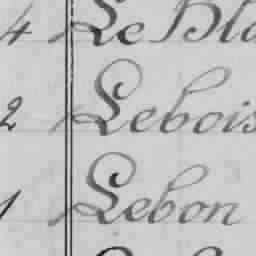 4 Le Bla
2 Lebois
1 Lebon